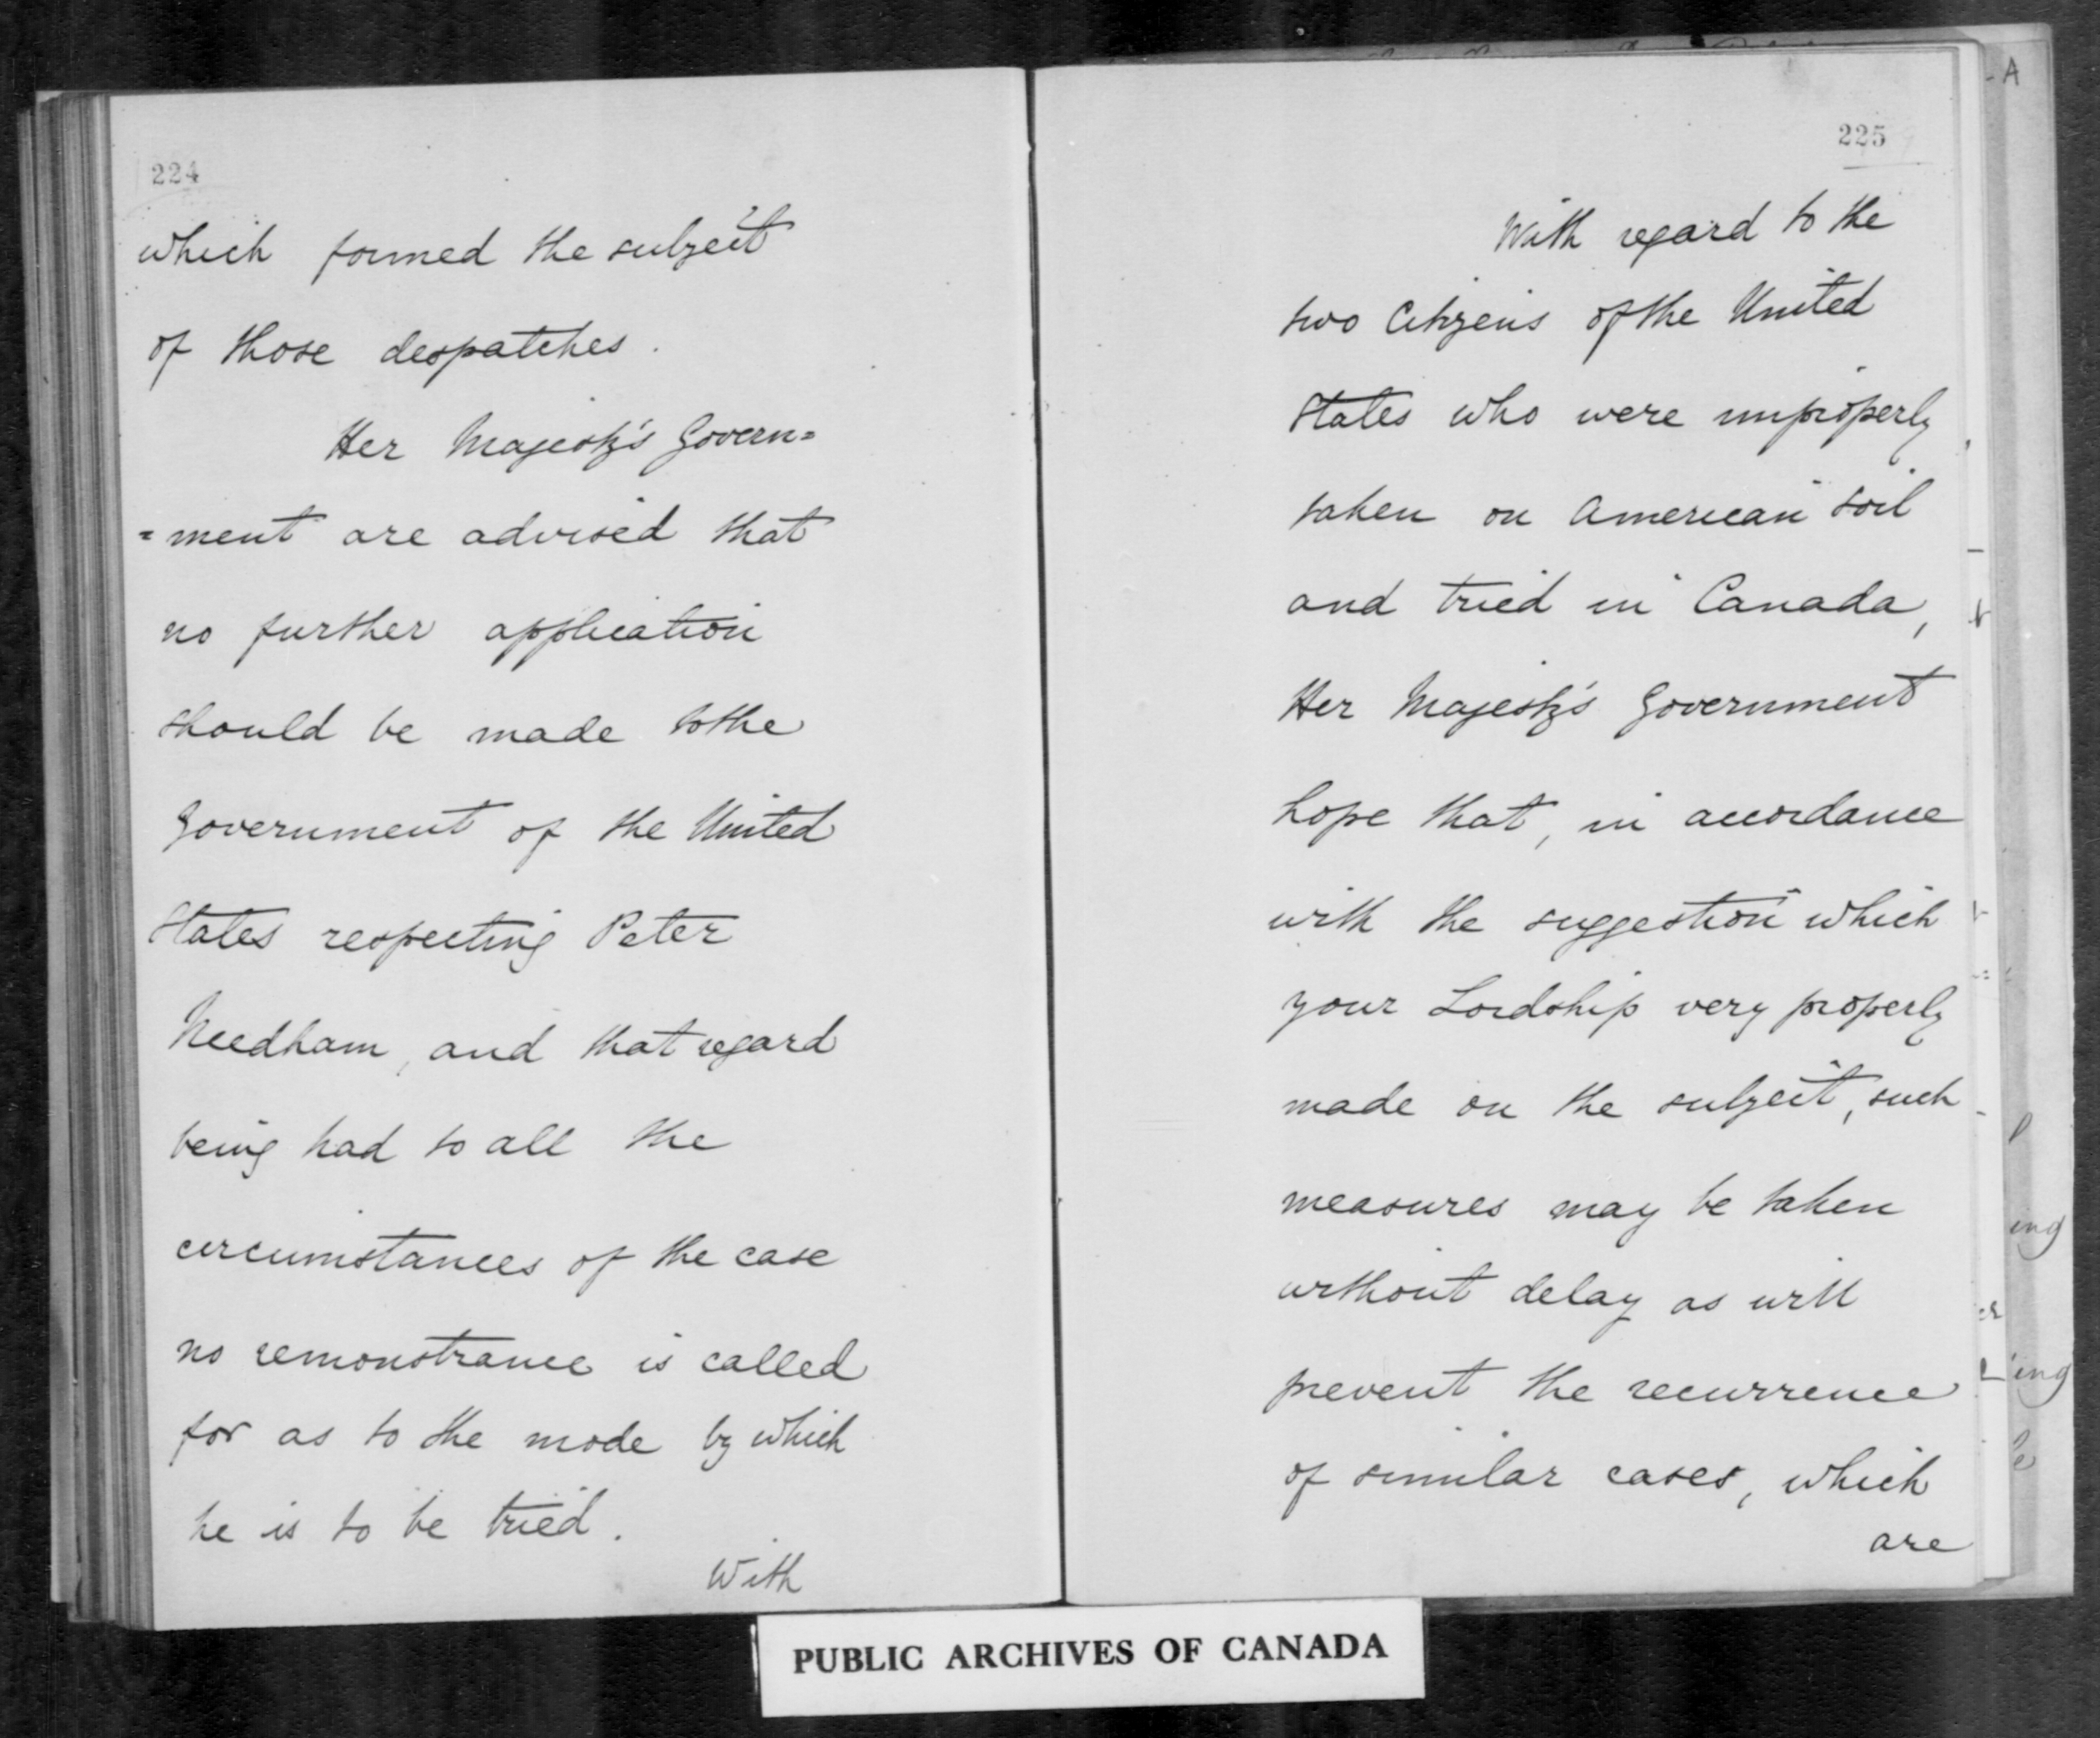 224
which formed the subject
of those despatches.
Her Majesty's Govern=
=ment are advised that
no further application
should be made to the
Government of the United
States respecting Peter
Needham, and that regard
being had to all the
circumstances of the case
no remonstrance is called
for as to the mode by which
he is to be tried.
With
225
With regard to the
two Citizens of the United
States who were improperly
taken on American soil
and tried in Canada,
Her Majesty's Government
hope that, in accordance
with the suggestion which
your Lordship very properly
made on the subject, such
measures may be taken
without delay as will
prevent the recurrence
of similar cases, which
are
PUBLIC ARCHIVES OF CANADA